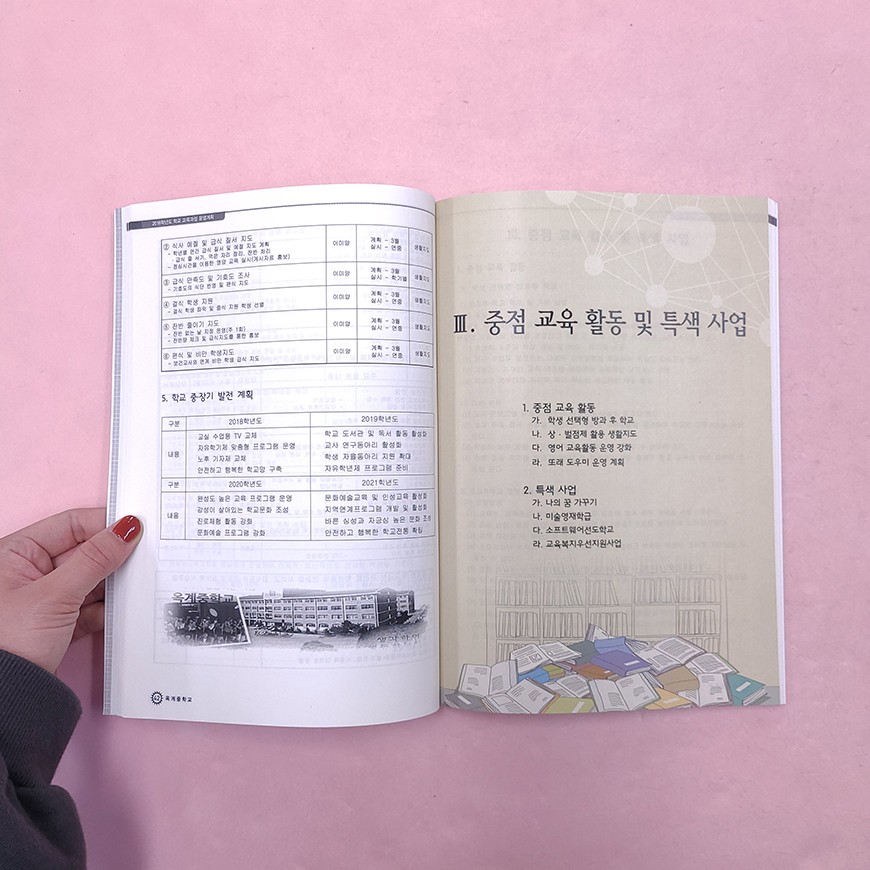 2018학년도 학교 교육과정 운영계획
② 식사 예절 및 급식 질서 지도
- 학년별 연간 급식 질서 및 예절 지도 계획
- 급식 줄 서기, 먹은 자리 정리, 잔반 처리
- 점심시간을 이용한 영양 교육 실시(게시자료 홍보)
이미양
계획 - 3월
실시 - 연중
생활지도
③ 급식 만족도 및 기호도 조사
- 기호도의 식단 반영 및 편식 지도
이미양
계획 - 3월
실시 - 학기별
생활지도
④ 결식 학생 지원
- 결식 학생 파악 및 중식 지원 학생 선별
이미양
계획 - 3월
실시 - 연중
생활지도
⑤ 잔반 줄이기 지도
- 잔반 없는 날 지정 운영(주 1회)
- 잔반량 체크 및 급식지도를 통한 홍보
이미양
계획 - 3월
실시 - 연중
생활지도
⑥ 편식 및 비만 학생지도
- 보건교사와 연계 비만 학생 급식 지도
이미양
계획 - 3월
실시 - 연중
생활지도
5. 학교 중장기 발전 계획
구분 2018학년도 2019학년도
내용
교실 수업용 TV 교체 학교 도서관 및 독서 활동 활성화
자유학기제 맞춤형 프로그램 운영 교사 연구동아리 활성화
노후 기자재 교체 학생 자율동아리 지원 확대
안전하고 행복한 학교망 구축 자유학년제 프로그램 준비
구분 2020학년도 2021학년도
내용
완성도 높은 교육 프로그램 운영 문화예술교육 및 인성교육 활성화
감성이 살아있는 학교문화 조성 지역연계프로그램 개발 및 활성화
진로체험 활동 강화 바른 심성과 자긍심 높은 문화 조성
문화예술 프로그램 강화 안전하고 행복한 학교전통 확립
옥계중학교
42 옥계중학교
Ⅲ. 중점 교육 활동 및 특색 사업
1. 중점 교육 활동
가. 학생 선택형 방과 후 학교
나. 상·벌점제 활용 생활지도
다. 영어 교육활동 운영 강화
라. 또래 도우미 운영 계획
2. 특색 사업
가. 나의 꿈 가꾸기
나. 미술영재학급
다. 소프트웨어선도학교
라. 교육복지우선지원사업